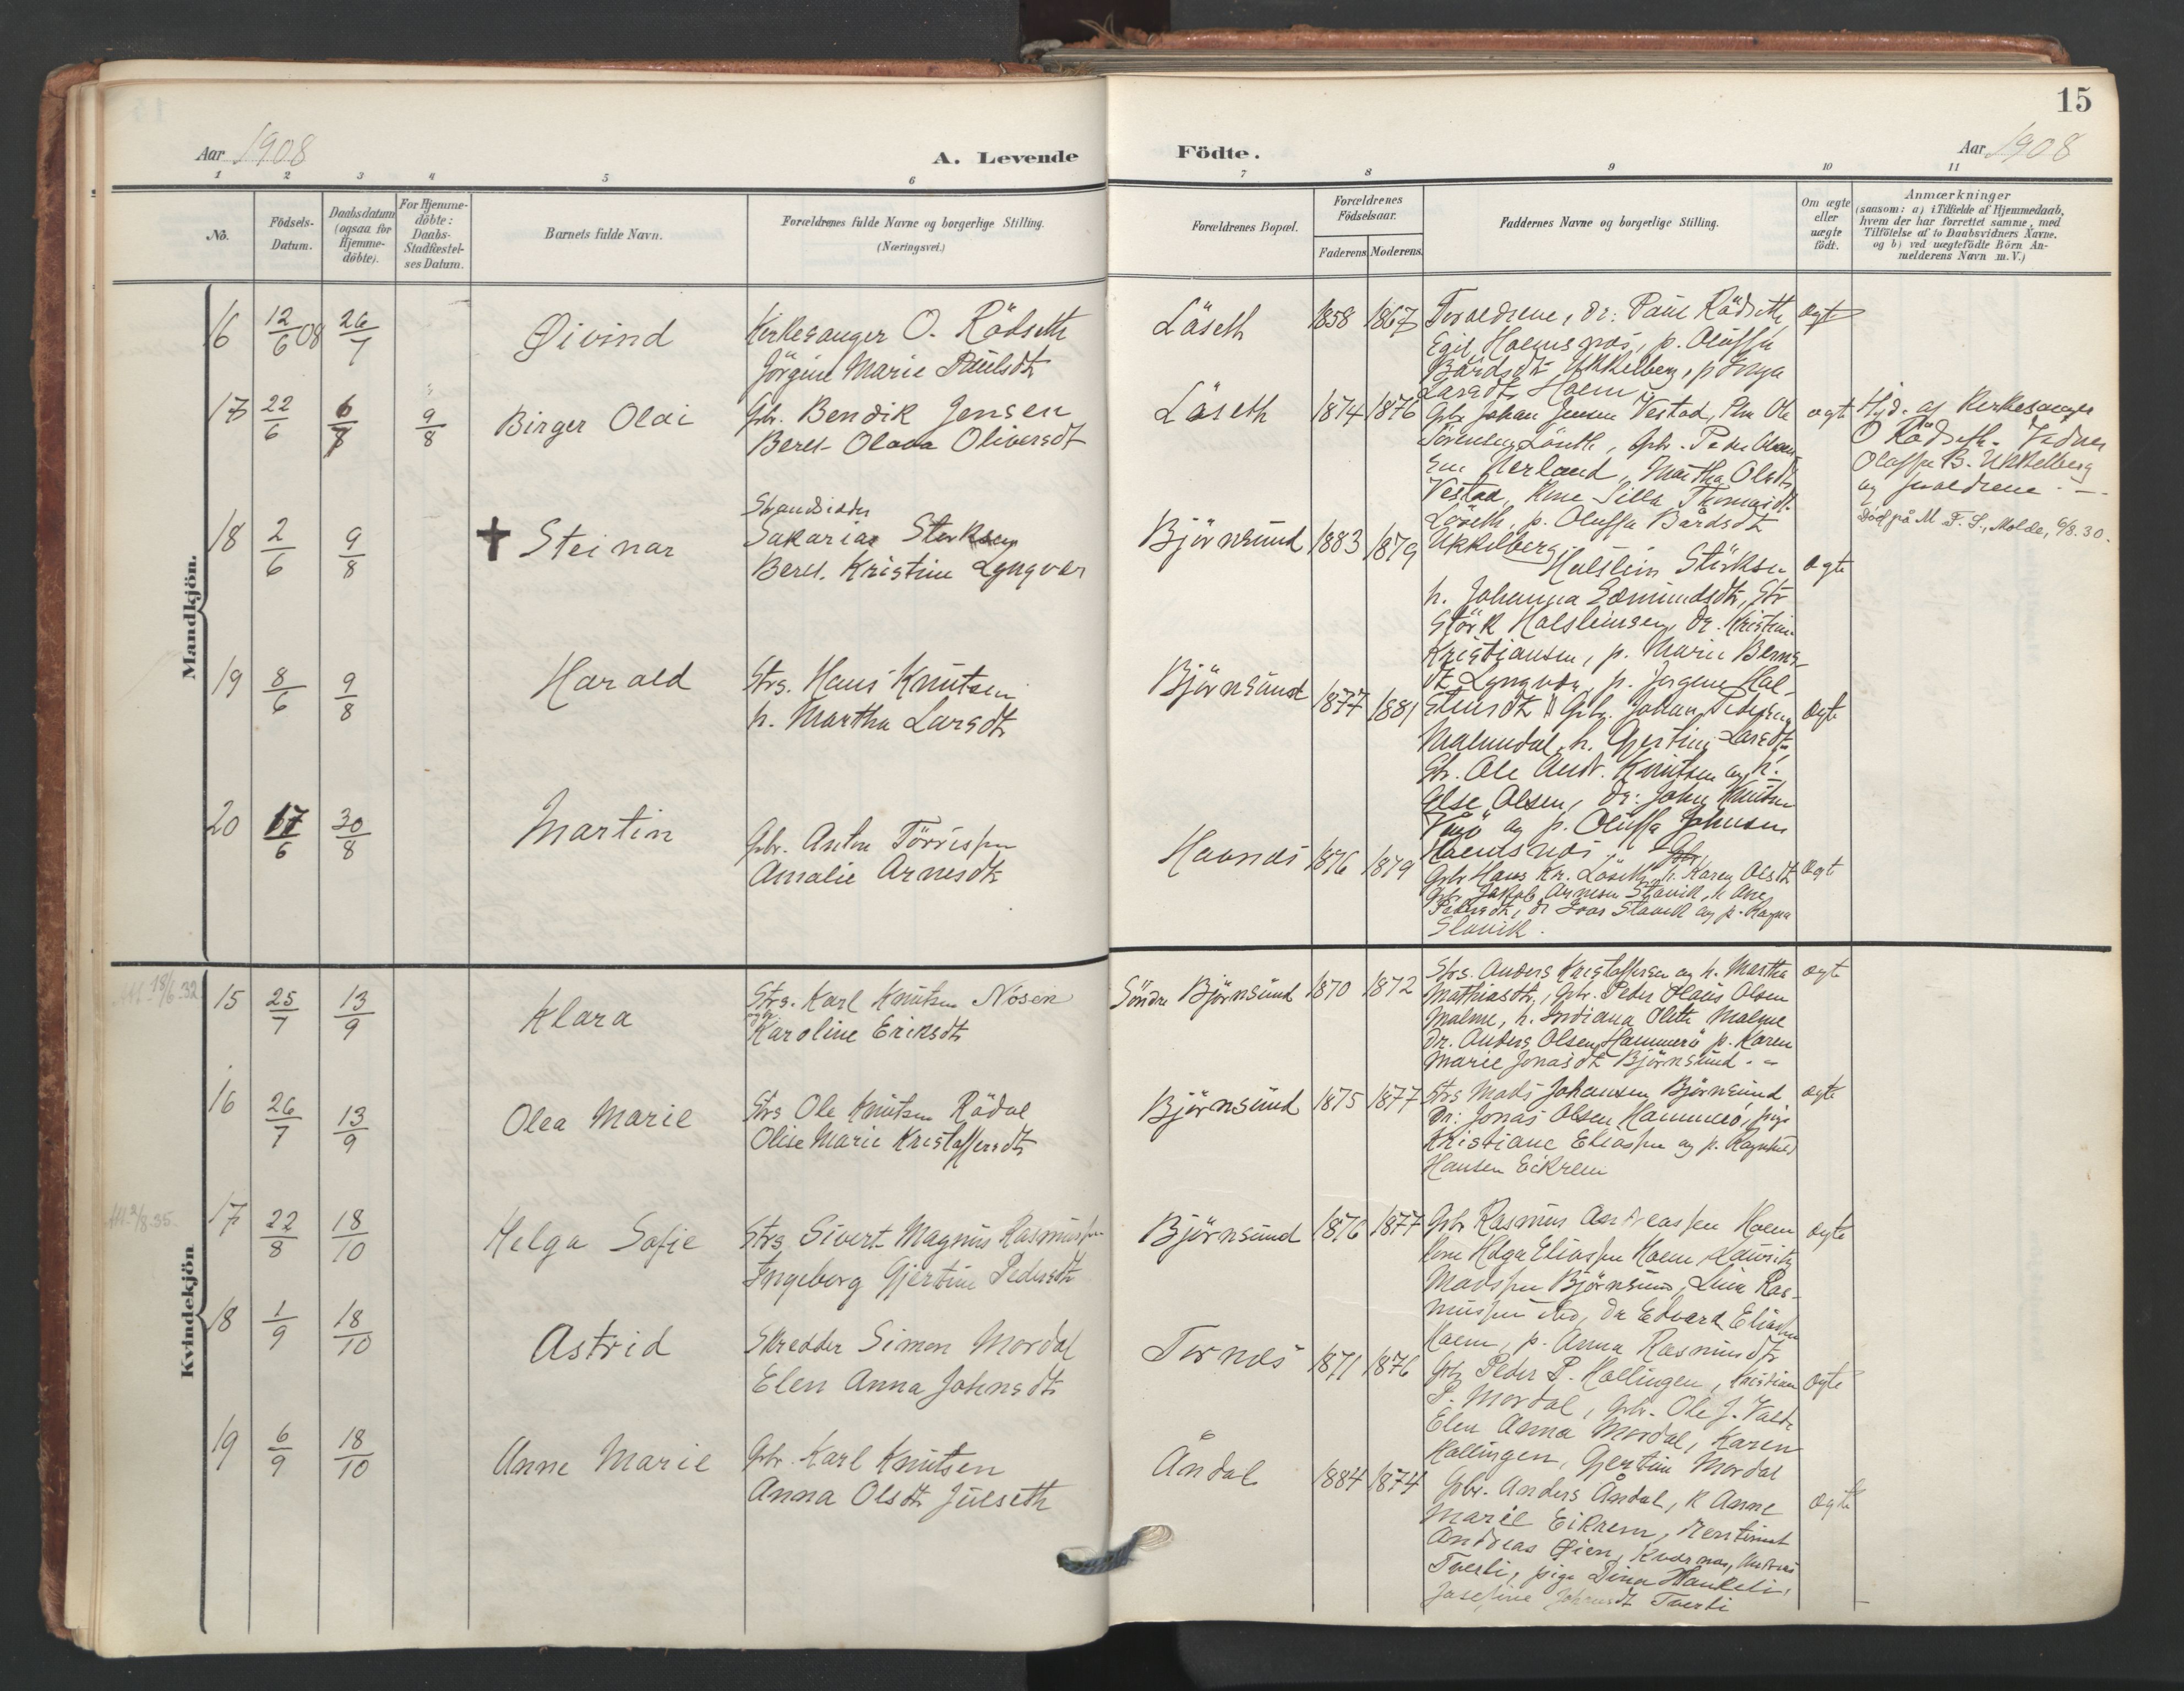 15
Aar 1908
A. Levende
Födte.
Aar 1908
1 2 3 4 5 6 7 8 9 10 11
No.
Födsels-
Datum.
Daabsdatum
(ogsaa for
Hjemme-
döbte).
For Hjemme-
döbte:
Daabs-
Stadfæstel-
ses Datum.
Barnets fulde Navn.
Forældrenes fulde Navne og borgerlige Stilling.
(Næringsvei.)
Forældrenes Bopæl.
Forældrenes
Födselsaar.
Faderens. Moderens.
Faddernes Navne og borgerlige Stilling.
Om ægte
eller
uægte
födt.
Anmærkninger
(saasom: a) i Tilfælde af Hjemmedaab,
hvem der har forrettet samme, med
Tilföielse af to Daabsvidners Navne.
og b) ved uægtefödte Börn An-
melderens Navn m. V.)
Mandkjön.
16 12/6 08 26/7 Øivind
Kirkesanger O. Rödseth
Jörgine Marie Paulsdt
Läseth 1858 1867
Forældrene, Dr: Paul Rödseth
Egil Haemsnæs, p. Oluffa
Bårdsdt Ukkelberg, p Inga
Larsdt Haem
ægte
17 22/6 6/8 9/8 Birger Olai
Gbr. Bendik Jensen
Beret Olava Oliversdt
Löseth 1874 1876
Gbr Johan Jensen Vestad, Ole
Sörensen Löseth, Gbr. Peder
Herland, Martha Olsdt
Vestad, Kone Silla Thomasdt
Löseth, p. Oluffa Bårdsdt
Ukkelberg
ægte
Hjd. af Kerkesanger
O Rödseth. Vidner
Oluffa B. Ukkelberg
og forældrene. —
Död på M. F. S., Molde, 6/8.30.
18 2/6 9/8 † Steinar
Strandsidder
Sakarias Storksen
Beret Kristine Lyngvær
Björnsund 1883 1879
Halstein Störksen
h. Johanna Edmundsdt, Str
Störk Halsteinsen, Dr. Kristian
Kristiansen, p. Marie Berns-
dt Lyngvær, p. Jörgine Hal-
steinsdt
ægte
19 8/6 9/8 Harald
Strs. Hans Knutsen
h. Martha Larsdt
Björnsund 1877 1881
Gbr. Johan Pedersen
Malmedal, h. Gjertine Larsdt
Str. Ole Andr. Knutsen og h.
Else Olsen, Dr: John Knutsen
og p. Oluffa Johnsen
Haemsnæs
ægte
20 17/6 30/8 Martin
Gbr. Anton Törrissen
Amalie Arnesdt
Haunæs 1876 1879
Gbr Hans Kr. Löseth, h. Karen Olsdt
Gbr Jakob Arnesen Stavik, h Ane
Pedersdt, Dr Ivar Stavik og p. Ragna
Stavik.
ægte
Kvindekjön
18/6.32
15 25/7 13/9 Klara
Strs. Karl Knutsen Nosen
og h.
Karoline Eriksdt
Söndre Björnsund 1870 1872
Strs. Anders Kristoffersen og h. Martha
Mathiasdtr, Gbr. Peder Olaus Olsen
Malme, h. Indiana Malme
Dr. Anders Olsen Hammerö p. Karen
Marie Jonasdt Björnsund. —
ægte
16 26/7 13/9 Olea Marie
Strs Ole Knutsen Rödal
Olise Marie Kristoffersdt
Björnsund 1875 1877
Strs Mads Johansen Björnsund
Dr: Jonas Olsen Hammerö, pige
Kristiane Eliassen og p. Ragnhild
Hansen Eikrem
ægte
2/8.35.
17 22/8 18/10 Helga Sofie
Strs Sivert Magnus Rasmussen
Ingeborg Gjertine Pedersdt
Björnsund 1876 1877
Gbr Rasmus Andreassen Haem
kone Helga Eliassen Haem, Laurits
Madssen Björnsund, Lina Ras-
mussen do, Dr Edvard Eliassen
Haem, p. Anna Rasmusdt
ægte
18 1/9 18/10 Astrid
Skredder Simon Mordal
Elen Anna Johnsdt
Tornæs 1871 1876
Gbr Peder P. Hollingen, Kristian
P. Mordal, Gbr. Ole J. Valde
Elen Anna Mordal, Karen
Hollingen, Gjertine Mordal
ægte
19 6/9 18/10 Anne Marie
Gbr. Karl Knutsen
Anna Olsdt Julseth
Åndal 1884 1874
Gbr. Anders Åndal, k Anne
Marie Eikrem,
Andreas Øien,
Tverli, pige Dina Haukeli,
Josefine Johansdt Tverli
ægte